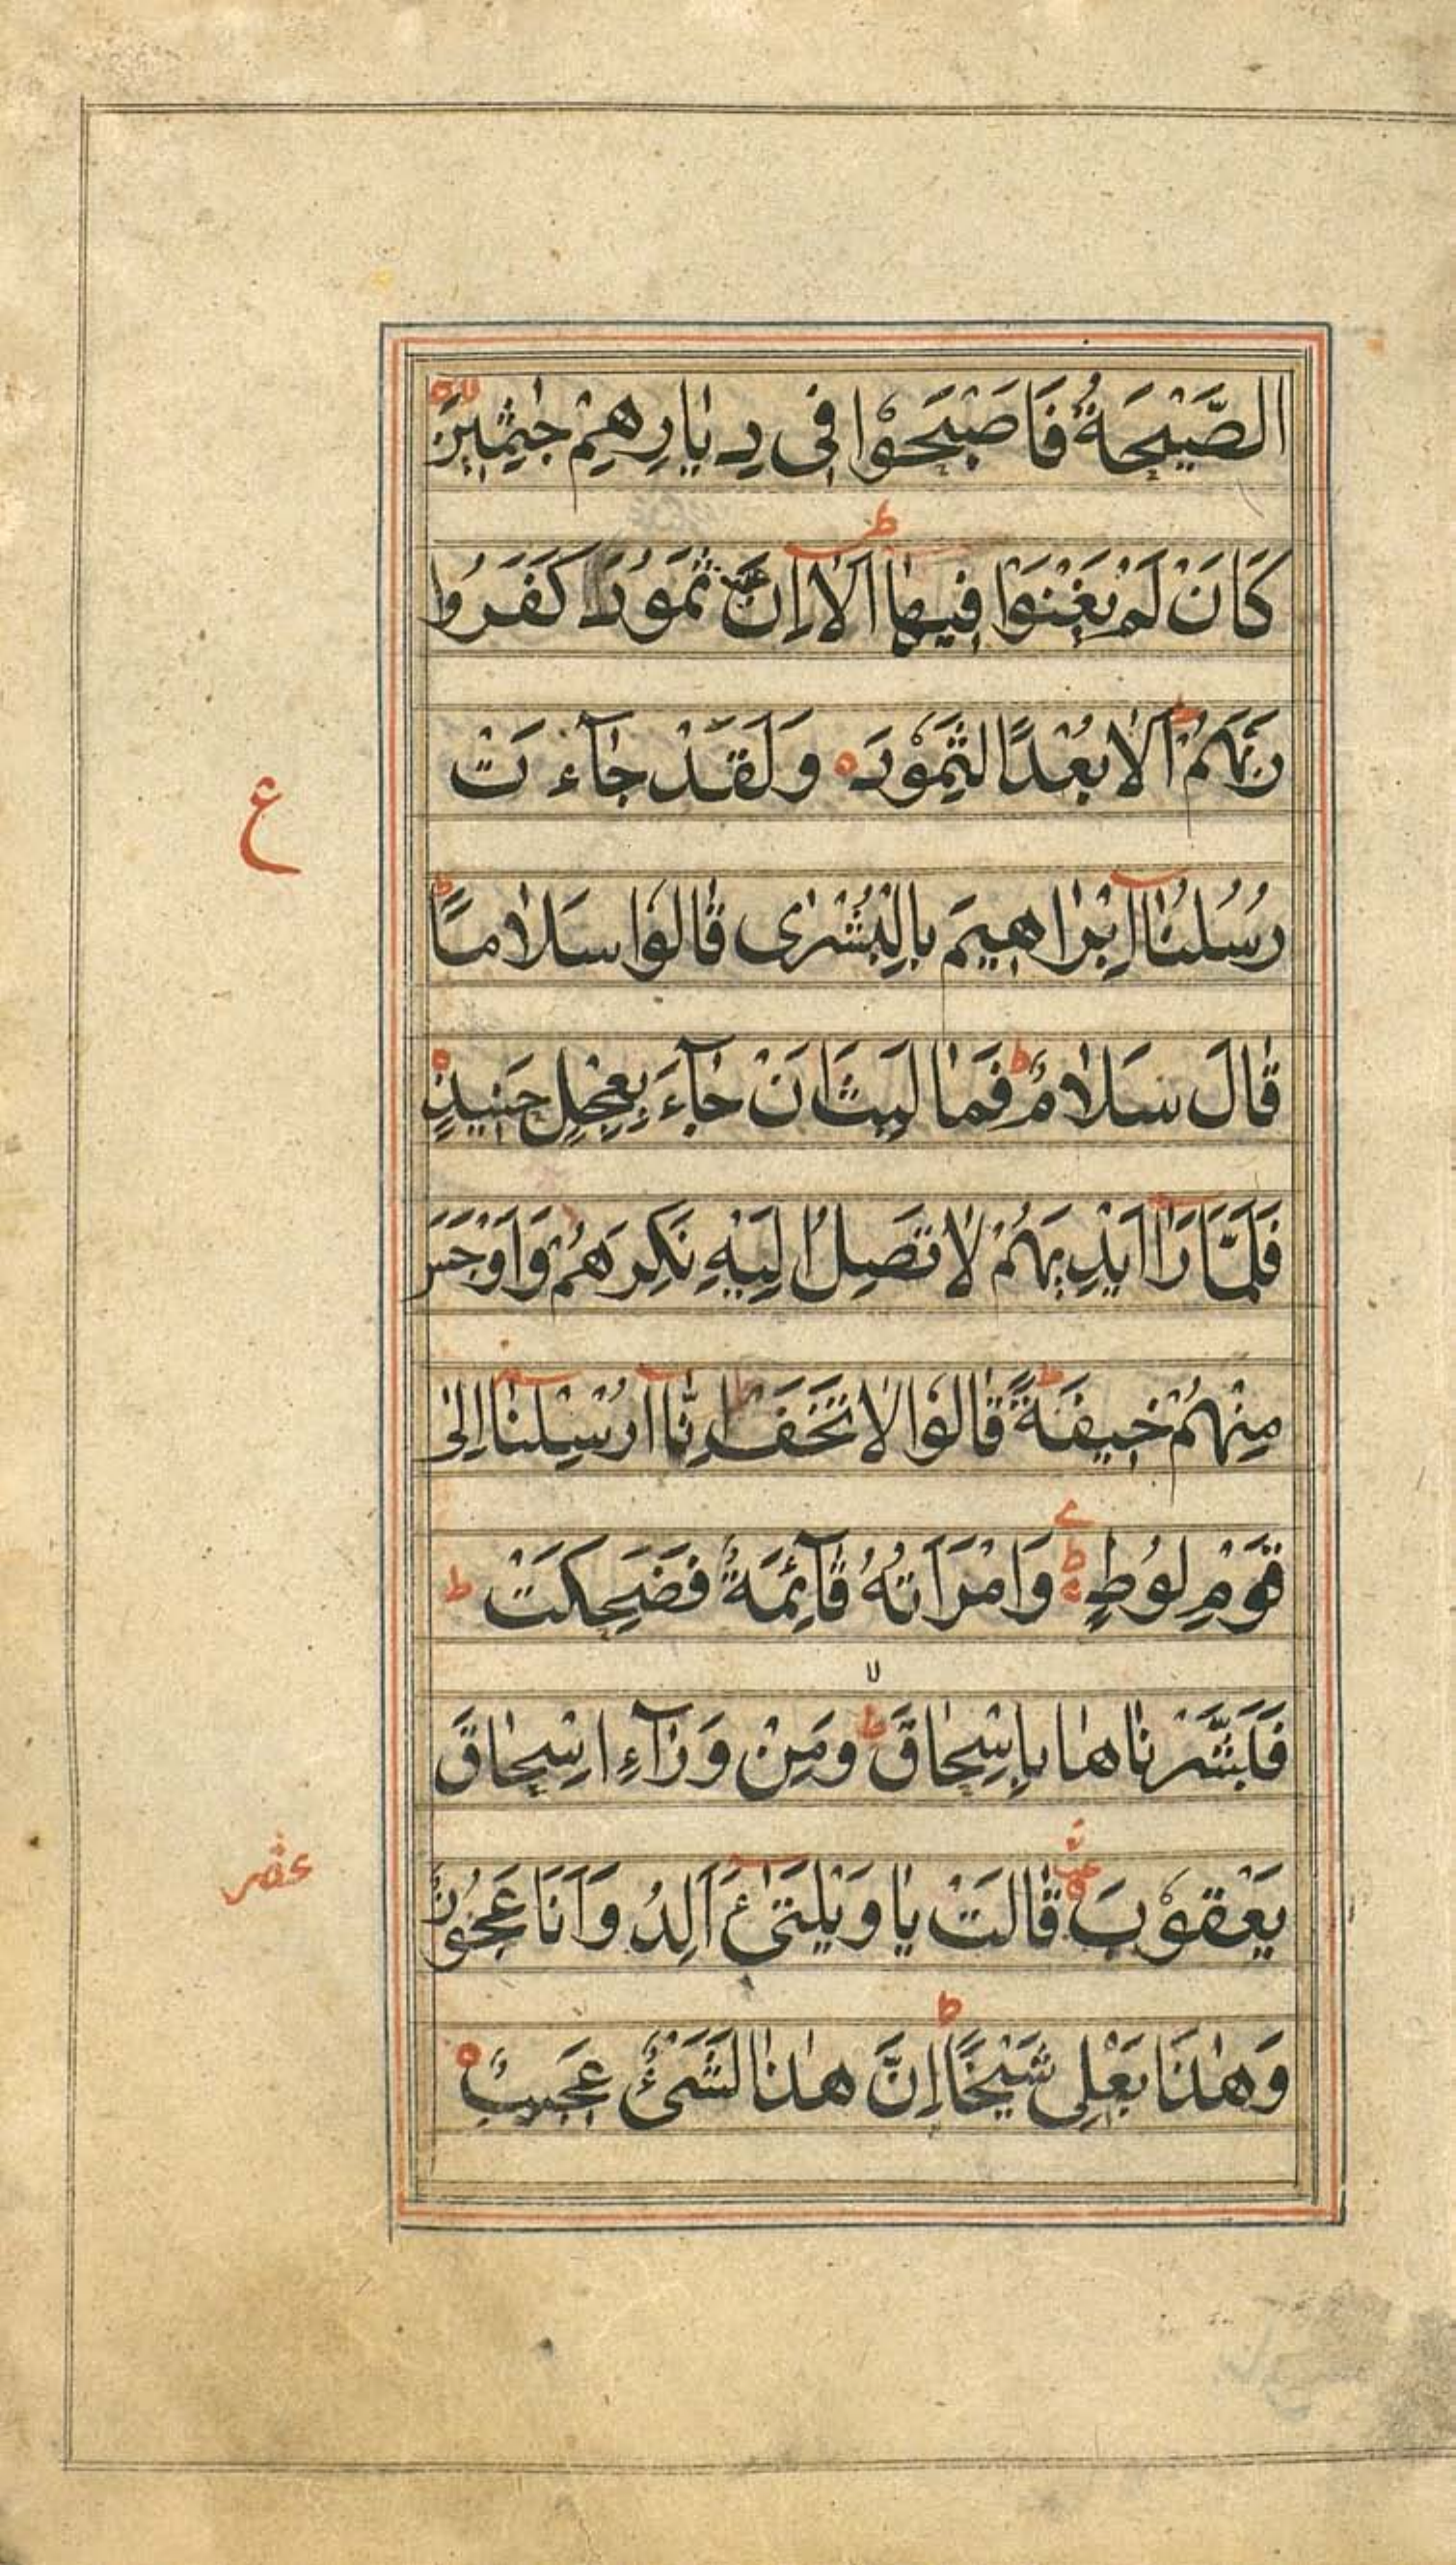 الصَّيْحَةُ فَاَصْبَحُوْا فِى دِيَارِهِمْ جٰثِمِيْنَ
كَاَنْ لَمْ يَغْنَوْا فِيهَا اَلَا اِنَّ ثَمُوْدَ كَفَرُوا
رَبَّهُمْ اَلَا بُعْدًا لِثَمُوْدَ وَلَقَدْ جَآءَتْ
ع
رُسُلُنَا اِبْرَاهِيمَ بِالْبُشْرٰى قَالُوا سَلَامًا
قَالَ سَلَامٌ فَمَا لَبِثَ اَنْ جَآءَ بِعِجْلٍ حَنِيذٍ
فَلَمَّا رَاٰ اَيْدِيَهُمْ لَا تَصِلُ اِلَيْهِ نَكِرَهُمْ وَاَوْجَسَ
مِنْهُمْ خِيفَةً قَالُوا لَا تَخَفْ اِنَّا اُرْسِلْنَا اِلٰى
قَوْمِ لُوطٍ وَامْرَاَتُهُ قَآئِمَةٌ فَضَحِكَتْ
فَبَشَّرْنَاهَا بِاِسْحَاقَ وَمِنْ وَرَآءِ اِسْحَاقَ
يَعْقُوْبَ قَالَتْ يَا وَيْلَتٰى ءَاَلِدُ وَاَنَا عَجُوْزٌ
عشر
وَهٰذَا بَعْلِى شَيْخًا اِنَّ هٰذَا لَشَىْءٌ عَجِيبٌ